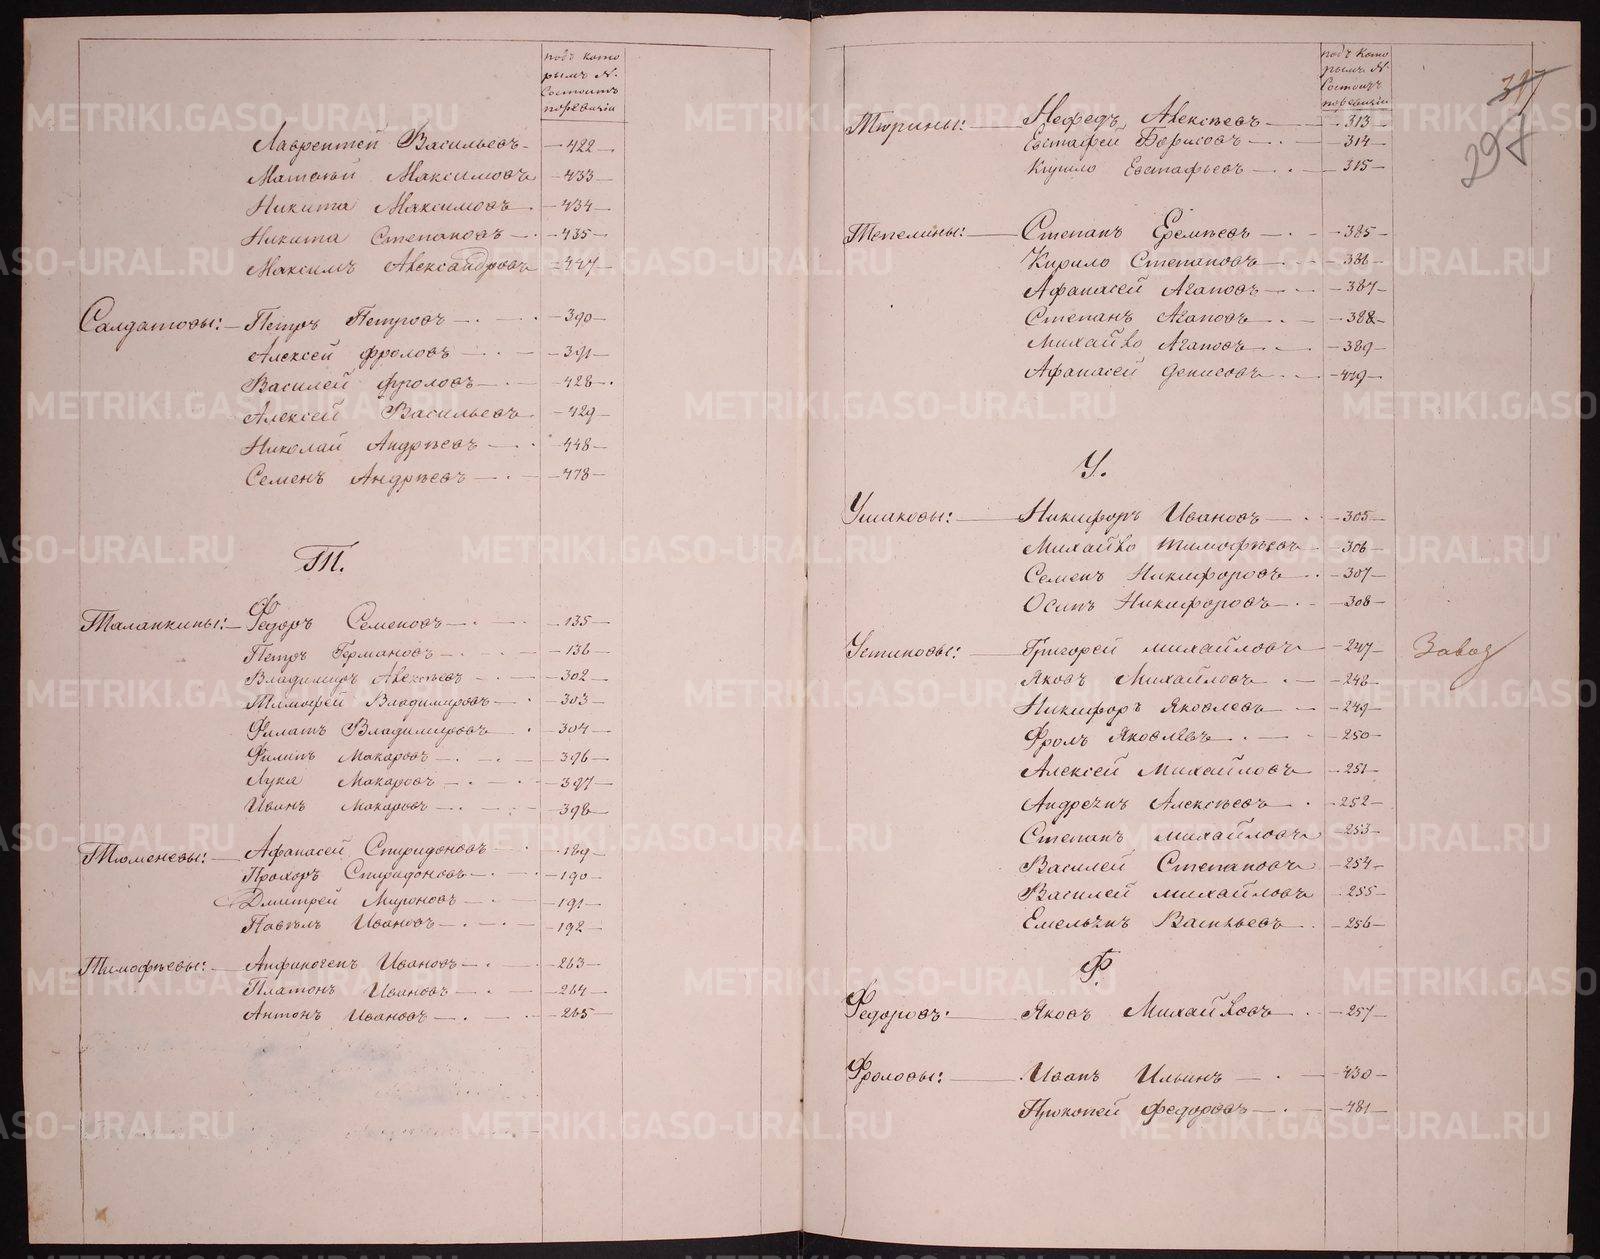 подъ кото
рымъ №
Состоитъ
поревизіи
Лаврентей Васильевъ — 422 —
Матвей Максимовъ — 433 —
Никита Максимовъ — 434 —
Никита Степановъ — 435 —
Максимъ Александровъ — 447 —
Салдатовы: — Петръ Петровъ — 390 —
Алексей Фроловъ — 391 —
Василей Фроловъ — 428 —
Алексей Васильевъ — 429 —
Николай Андреевъ — 448 —
Семенъ Андреевъ — 478 —
Т.
Талапкины: — Федоръ Семеновъ — 135
Петръ Германовъ — 136
Владимиръ Алексеевъ — 302
Тимофей Владимировъ — 303
Филатъ Владимировъ — 304
Филипъ Макаровъ — 396
Лука Макаровъ — 397
Иванъ Макаровъ — 398
Тюменевы: — Афанасей Спиридоновъ — 189
Прохоръ Спиридоновъ — 190
Дмитрей Мироновъ — 191
Павелъ Ивановъ — 192
Тимофѣевы: — Анфиногенъ Ивановъ — 263
Платонъ Ивановъ — 264
Антонъ Ивановъ — 265
подъ кото
рымъ №
Состоитъ
поревизіи
297
Тюрины: — Нефедъ Алексѣевъ — 313
Евстафей Борисовъ — 314
Кирило Евстафьевъ — 315
Тепелины: — Степанъ Еремѣевъ — 385
Кирило Степановъ — 386
Афанасей Агаповъ — 387
Степанъ Агаповъ — 388
Михайло Агаповъ — 389
Афанасей Денисовъ — 479
У.
Ушаковы: — Никифоръ Ивановъ — 305
Михайло Тимофѣевъ — 306
Семенъ Никифоровъ — 307
Осипъ Никифоровъ — 308
Устиновы: — Григорей Михайловъ — 247 — Завод
Яковъ Михайловъ — 248
Никифоръ Яковлевъ — 249
Фролъ Яковлевъ — 250
Алексей Михайловъ — 251
Андреянъ Алексѣевъ — 252
Степанъ Михайловъ — 253
Василей Степановъ — 254
Василей Михайловъ — 255
Емельянъ Васильевъ — 256
Ф.
Федоровъ: Яковъ Михайловъ — 257
Фроловы: — Иванъ Ильинъ — 430
Прокопей Федоровъ — 481
METRIKI.GASO-URAL.RU